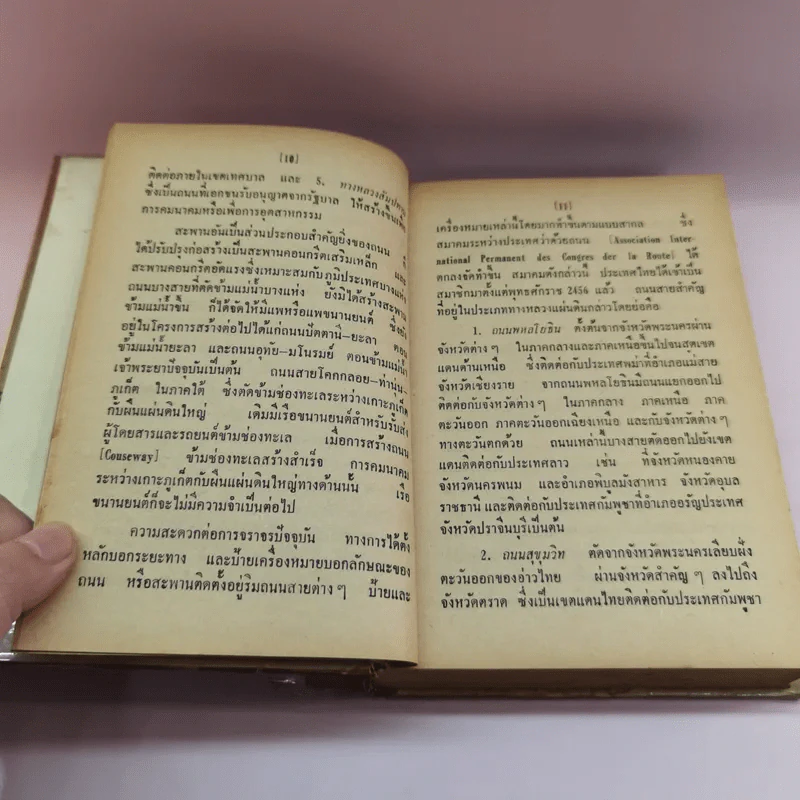 [10]
ติดต่อภายในเขตเทศบาล และ 5. ทางหลวงสัมปทาน
ซึ่งเป็นถนนที่เอกชนรับอนุญาตจากรัฐบาล ให้สร้างขึ้นเพื่อ
การคมนาคมหรือเพื่อการอุตสาหกรรม
สะพานอันเป็นส่วนประกอบสำคัญยิ่งของถนน ก็
ได้ปรับปรุงก่อสร้างเป็นสะพานคอนกรีตเสริมเหล็ก และ
สะพานคอนกรีตอัดแรงซึ่งเหมาะสมกับภูมิประเทศบางแห่ง
ถนนบางสายที่ตัดข้ามแม่น้ำบางแห่ง ยังมิได้สร้างสะพาน
ข้ามแม่น้ำขึ้น ก็ได้จัดให้มีแพหรือแพขนานยนต์ ซึ่งยัง
อยู่ในโครงการสร้างต่อไปได้แก่ถนนปัตตานี-ยะลา ตอน
ข้ามแม่น้ำยะลา และถนนอุทัย-มโนรมย์ ตอนข้ามแม่น้ำ
เจ้าพระยาปัจจุบันเป็นต้น ถนนสายโคกกลอย-ท่านุ่น-
ภูเก็ต ในภาคใต้ ซึ่งตัดข้ามช่องทะเลระหว่างเกาะภูเก็ต
กับผืนแผ่นดินใหญ่ เดิมมีเรือขนานยนต์สำหรับรับส่ง
ผู้โดยสารและรถยนต์ข้ามช่องทะเล เมื่อการสร้างถนน
[Couseway] ข้ามช่องทะเลสร้างสำเร็จ การคมนาคม
ระหว่างเกาะภูเก็ตกับผืนแผ่นดินใหญ่ทางด้านนั้น เรือ
ขนานยนต์ก็จะไม่มีความจำเป็นต่อไป
ความสะดวกต่อการจราจรปัจจุบัน ทางการได้ตั้ง
หลักบอกระยะทาง และป้ายเครื่องหมายบอกลักษณะของ
ถนน หรือสะพานติดตั้งอยู่ริมถนนสายต่าง ๆ ป้ายและ
[11]
เครื่องหมายเหล่านี้โดยมากทำขึ้นตามแบบสากล ซึ่ง
สมาคมระหว่างประเทศว่าด้วยถนน [Association Inter-
national Permanent des Congres der la Route] ได้
ตกลงจัดทำขึ้น สมาคมดังกล่าวนี้ ประเทศไทยได้เข้าเป็น
สมาชิกมาตั้งแต่พุทธศักราช 2456 แล้ว ถนนสายสำคัญ
ที่อยู่ในประเภททางหลวงแผ่นดินกล่าวโดยย่อคือ
1. ถนนพหลโยธิน ตั้งต้นจากจังหวัดพระนครผ่าน
จังหวัดต่าง ๆ ในภาคกลางและภาคเหนือขึ้นไปจนสุดเขต
แดนด้านเหนือ ซึ่งติดต่อกับประเทศพม่าที่อำเภอแม่สาย
จังหวัดเชียงราย จากถนนพหลโยธินมีถนนแยกออกไป
ติดต่อกับจังหวัดต่าง ๆ ในภาคกลาง ภาคเหนือ ภาค
ตะวันออก ภาคตะวันออกเฉียงเหนือ และกับจังหวัดต่าง ๆ
ทางตะวันตกด้วย ถนนเหล่านี้บางสายตัดออกไปยังเขต
แดนติดต่อกับประเทศลาว เช่น ที่จังหวัดหนองคาย
จังหวัดนครพนม และอำเภอพิบูลมังสาหาร จังหวัดอุบล
ราชธานี และติดต่อกับประเทศกัมพูชาที่อำเภออรัญประเทศ
จังหวัดปราจีนบุรีเป็นต้น
2. ถนนสุขุมวิท ตัดจากจังหวัดพระนครเลียบฝั่ง
ตะวันออกของอ่าวไทย ผ่านจังหวัดสำคัญ ๆ ลงไปถึง
จังหวัดตราด ซึ่งเป็นเขตแดนไทยติดต่อกับประเทศกัมพูชา